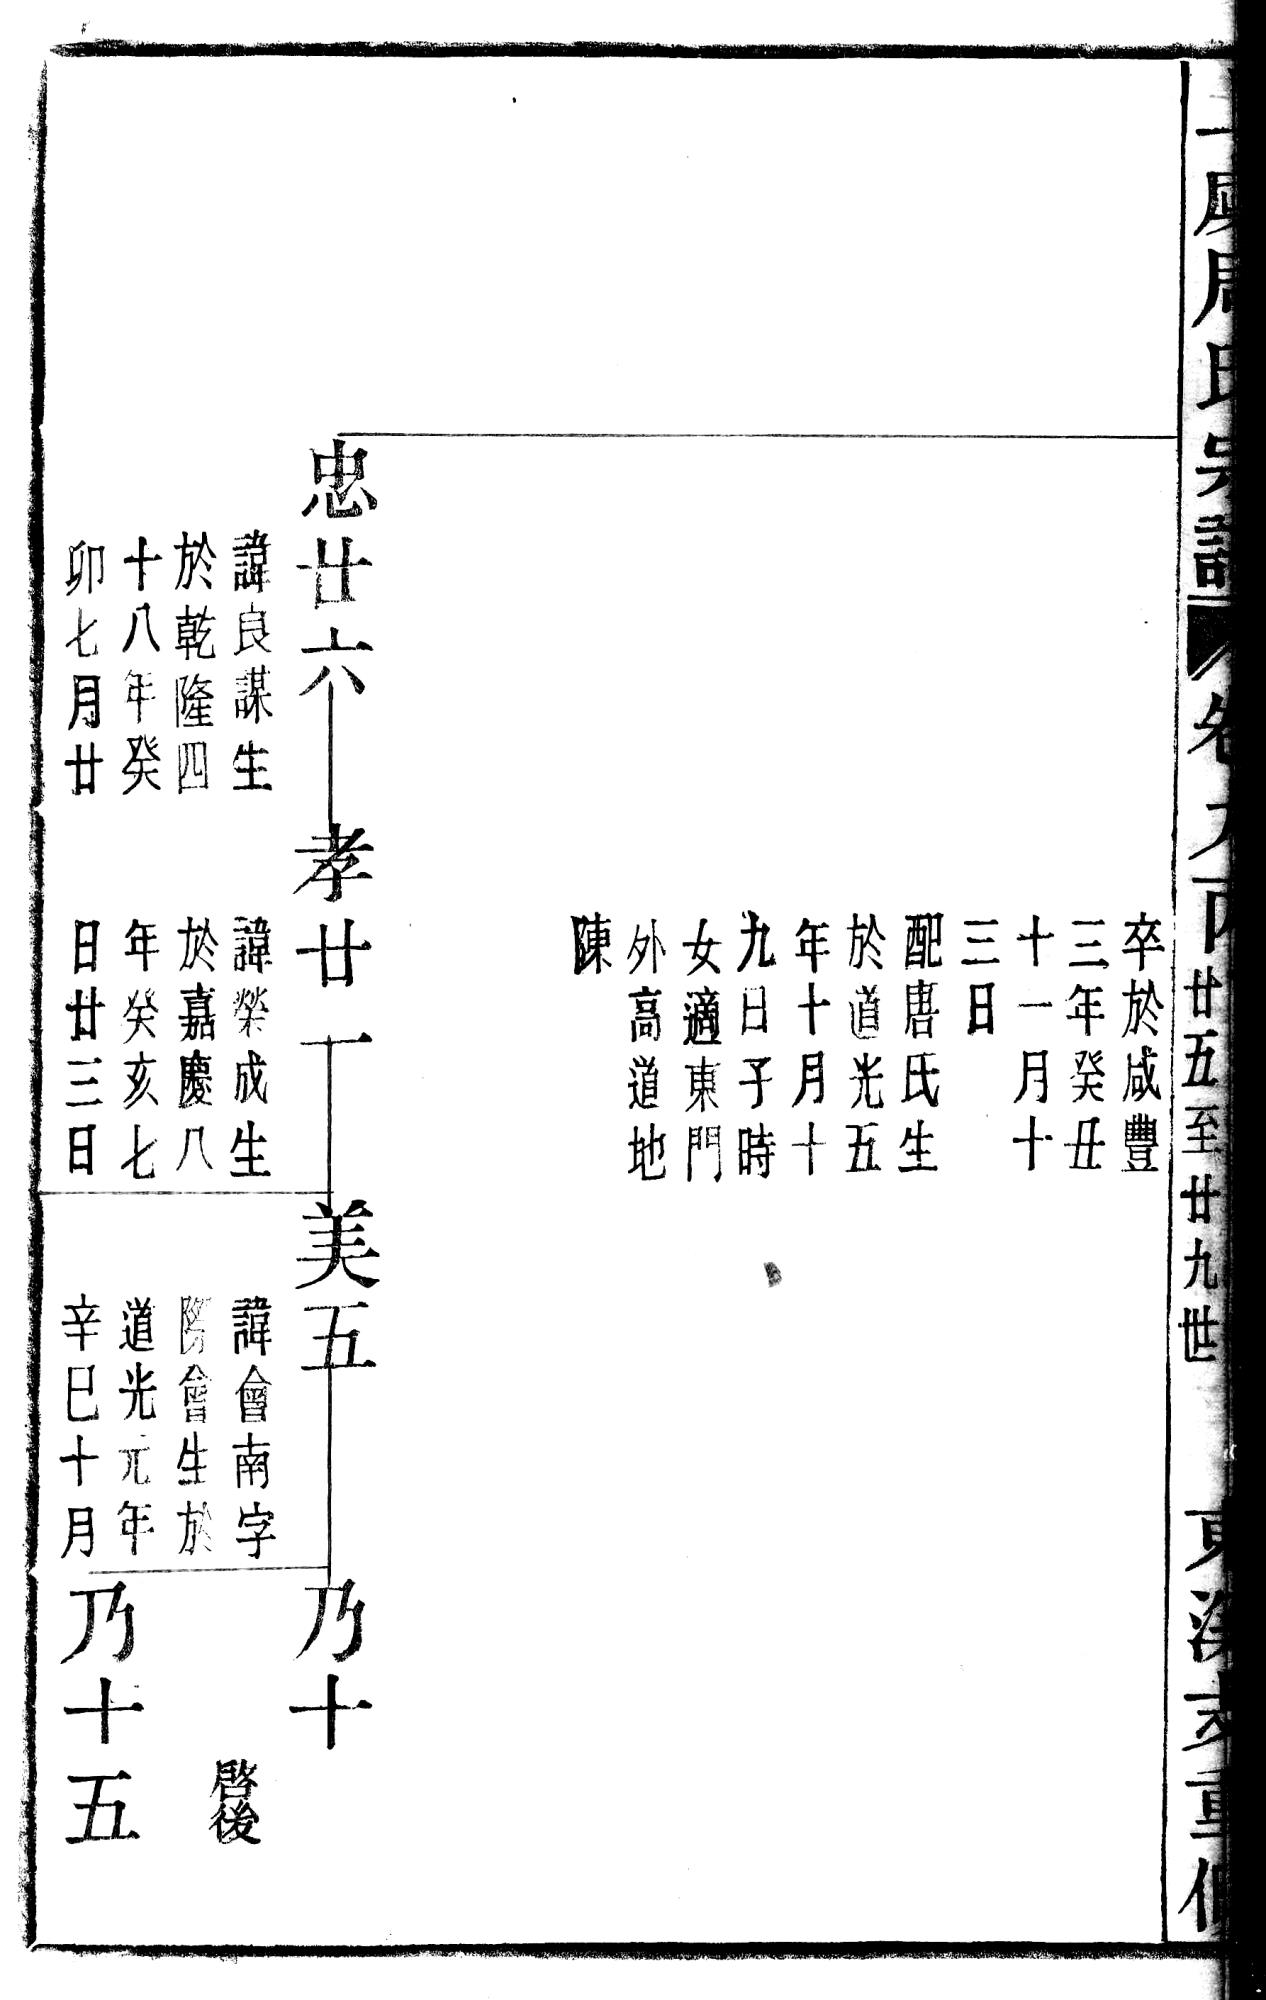 周氏宗譜 卷九丙 廿五至廿九世
卒於咸豐
三年癸丑
十一月十
三日
配唐氏生
於道光五
年十月十
九日子時
女適東門
外高道地
陳
忠廿六
諱良謀生
於乾隆四
十八年癸
卯七月廿
孝廿一
諱榮成生
於嘉慶八
年癸亥七
日廿三日
美五
諱會南字
際會生於
道光元年
辛巳十月
乃十
啓後
乃十五